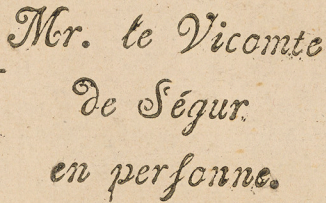 Mr. le Vicomte
de Ségur
en perſonne.